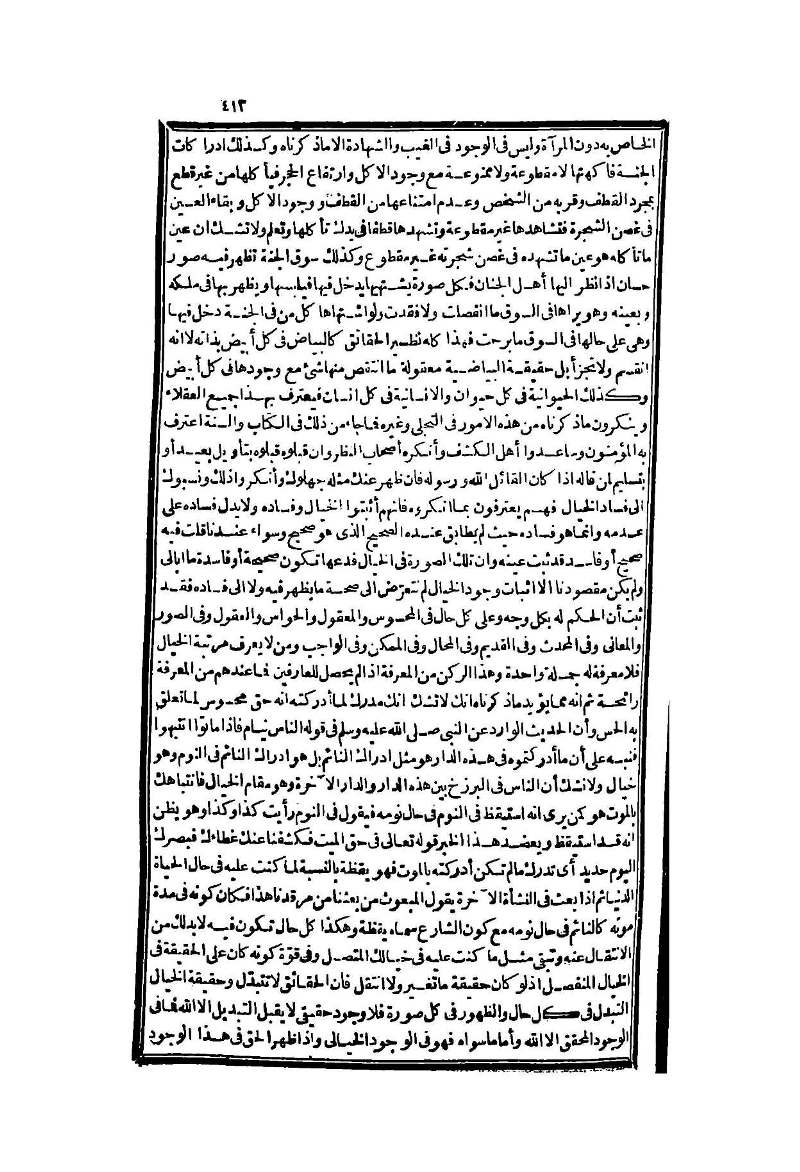 ٤١٣
الخاص به دون المرآة وليس في الوجود في الغيب والشهادة الا ماذكرناه وكذلك ادراكات
الجنة فاكهتها لا مقطوعة ولا ممنوعة مع وجود الاكل وارتفاع الحجر فيأكلها من غير قطع
بمجرد القطف وقربه من الشخص وعدم امتناعها من القطف ووجود الاكل وبقاء العين
في غصن الشجرة فتشاهدها غير مقطوعة وتشهدها قطفا في يدك تأكلها وتعلم ولا تشك ان عين
ما تأكله هو عين ما تشهده في غصن شجرته غير مقطوع وكذلك سوق الجنة تظهر فيه صور
حسان اذا نظر اليها أهل الجنان فكل صورة يشتهيها يدخل فيها فيلبسها ويظهر بها في ملكه
وبعينه وهو يراها في السوق ما انفصلت ولا فقدت ولو اشتهاها كل من في الجنة دخل فيها
وهى على حالها في السوق ما برحت فهذا كله نظير الحقائق كالبياض في كل أبيض بذاته لا انه
انقسم ولا تجزأ بل حقيقة البياضية معقولة ما انتقص منها شئ مع وجودها في كل أبيض
وكذلك الحيوانية في كل حيوان والانسانية في كل انسان فيعترف بهذا جميع العقلاء
وينكرون ماذكرناه من هذه الامور في التجلي وغيره فما جاء من ذلك في الكتاب والسنة اعترف
به المؤمنون وساعدوا أهل الكشف وأنكره أصحاب النظر وان قبلوه قبلوه بتأويل بعيد أو
بتسليم لمن قاله اذا كان القائل الله ورسوله فان ظهر عنك مثله جهلوك وأنكروا ذلك ونسبوك
الى فساد الخيال فهم يعترفون بما أنكروه فانهم أثبتوا الخيال وفساده ولا يدل فساده على
عدمه وانما هو فساده حيث لم يطابق عنده الصحيح الذى هو صحيح وسواء عندنا قلت فيه
صحيح أو فاسد قد ثبت عينه وان تلك الصورة في الخيال فدعها تكون صحيحة أو فاسدة ما ابالى
ولم يكن مقصودنا الا اثبات وجود الخيال لم نتعرض الى صحة ما يظهر فيه ولا الى فساده فقد
ثبت أن الحكم له بكل وجه وعلى كل حال في المحسوس والمعقول والحواس والعقول وفى الصور
والمعانى وفى المحدث وفى القديم وفى المحال وفى الممكن وفى الواجب ومن لا يعرف مرتبة الخيال
فلا معرفة له جملة واحدة وهذا الركن من المعرفة اذا لم يحصل للعارفين فما عندهم من المعرفة
رائحة ثم انه مما يؤيد ماذكرناه انك لا تشك انك مدرك لما أدركته انه حق محسوس لما تعلق
به الحس وأن الحديث الوارد عن النبى صلى الله عليه وسلم في قوله الناس نيام فاذا ماتوا انتبهوا
فنبه على أن ما أدركتموه في هذه الدار هو مثل ادراك النائم بل هو ادراك النائم في النوم وهو
خيال ولا تشك أن الناس في البرزخ بين هذه الدار والدار الآخرة وهو مقام الخيال فانتباهك
بالموت هو كمن يرى انه استيقظ في النوم في حال نومه فيقول في النوم رأيت كذا وكذا وهو يظن
انه قد استيقظ ويعضد هذا الخبر قوله تعالى في حق الميت فكشفنا عنك غطاءك فبصرك
اليوم حديد أى تدرك ما لم تكن أدركته بالموت فهو يقظة بالنسبة لما كنت عليه في حال الحياة
الدنيا ثم اذا بعث في النشأة الآخرة يقول المبعوث من بعثنا من مرقدنا هذا فكان كونه في مدة
موته كالنائم في حال نومه مع كون الشارع سماه يقظة وهكذا كل حال تكون فيه لا بد لك من
الانتقال عنه وتبقى مثل ما كنت عليه في خيالك المتصل وفى قوة كونه كان على الحقيقة في
الخيال المنفصل اذ لو كان حقيقة ما تغير ولا انتقل فان الحقائق لا تتبدل وحقيقة الخيال
التبدل في كل حال والظهور في كل صورة فلا وجود حقيقى لا يقبل التبديل الا الله فما في
الوجود المحقق الا الله وأما ما سواه فهو في الوجود الخيالى واذا ظهر الحق في هذا الوجود